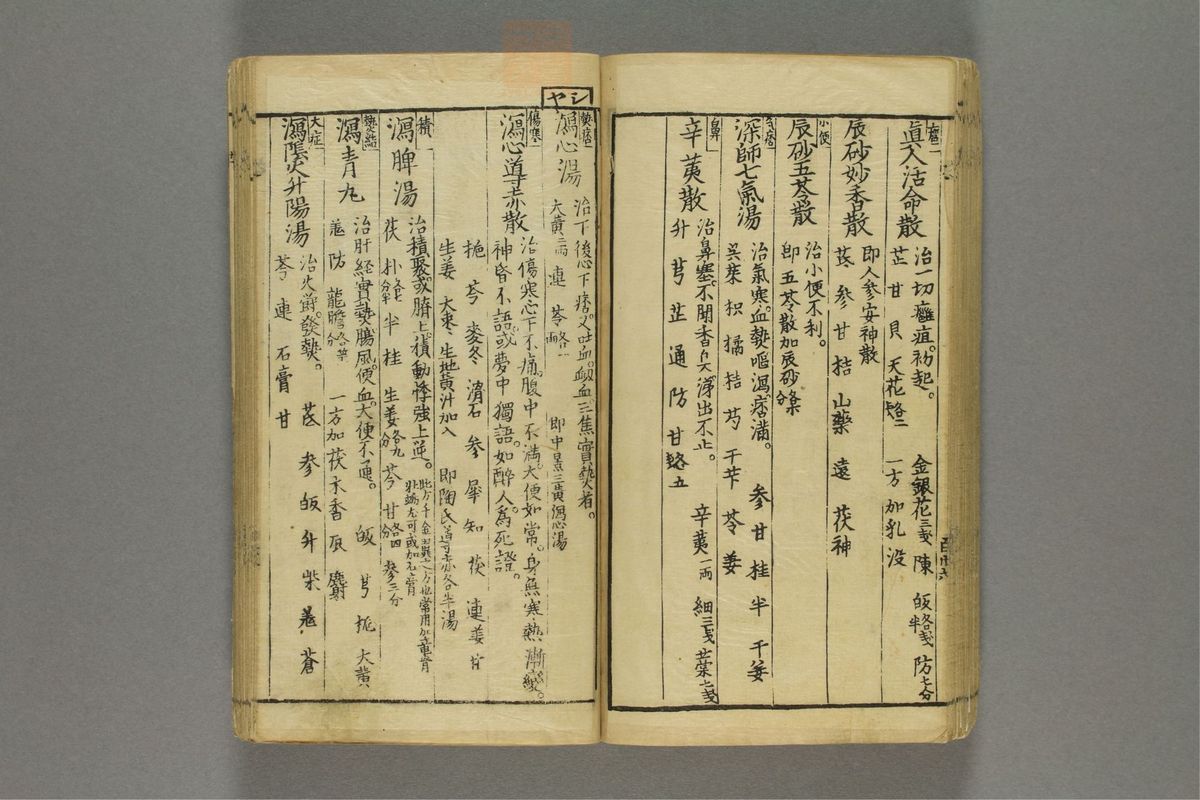 癰
真人活命散
治一切癰疽初起。
金銀花三戔 陳 皈各戔半 防七分
芷 甘 貝 天花各二 一方加乳没
辰砂妙香散
即人参安神散
茋 参 甘 桔 山藥 遠 茯神
小便
辰砂五苓散
治小便不利。
即五苓散加辰砂
深師七氣湯
治氣寒血熱嘔瀉痞滿。 参 甘 桂 半 干姜
呉茱 枳 橘 桔 芍 干芐 苓 姜
鼻
辛荑散
治鼻塞。不聞香臭。涕出不止。 辛荑一両 細三戔 芷 藁
升 芎 芷 通 防 甘各五
シヤ
瀉心湯
治下後心下痞。又吐血。衂血。三焦實熱者。
大黄二両 連 芩各一両 即仲景三黄瀉心湯
傷寒
瀉心導赤散
治傷寒心下不痛。腹中不満。大便如常。身無寒熱。漸變。
神昏不語。或夢中獨語。如醉人。為死證。
梔 芩 麥冬 滑石 参 犀 知 茯 連 姜 甘
生姜 大棗 生地黄汁加入 即陶氏導赤各半湯
積
瀉脾湯
治積聚或臍上積動悸強上逆。
茯 朴 半 桂 生姜 芩 甘各四分 参三分
瀉青丸
治肝経實熱腸風。便血。大便不通。 皈 芎 梔 大黄
羗 防 龍膽各等分 一方加茯 木香 辰 麝
瀉陰火升陽湯
治火欝。發熱。 茋 参 皈 升 柴 羗 蒼
芩 連 石膏 甘